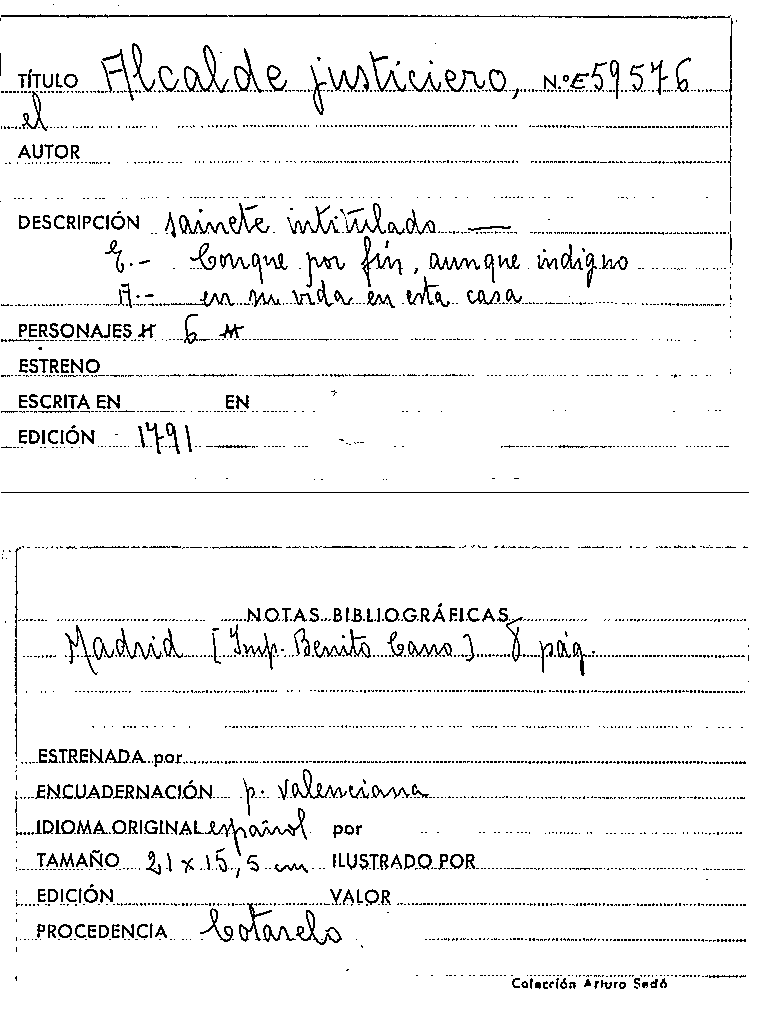 TÍTULO Alcalde justiciero, N.º E 59576
el
AUTOR
DESCRIPCIÓN sainete intitulado —
E.- Conque por fin, aunque indigno
A.- en su vida en esta casa
PERSONAJES H 6 M
ESTRENO
ESCRITA EN EN
EDICIÓN 1791
NOTAS BIBLIOGRÁFICAS
Madrid [Imp. Benito Cano] 8 pág.
ESTRENADA por
ENCUADERNACIÓN p. valenciana
IDIOMA ORIGINAL español por
TAMAÑO 21 x 15,5 cm ILUSTRADO POR
EDICIÓN VALOR
PROCEDENCIA Cotarelo
Colección Arturo Sedó